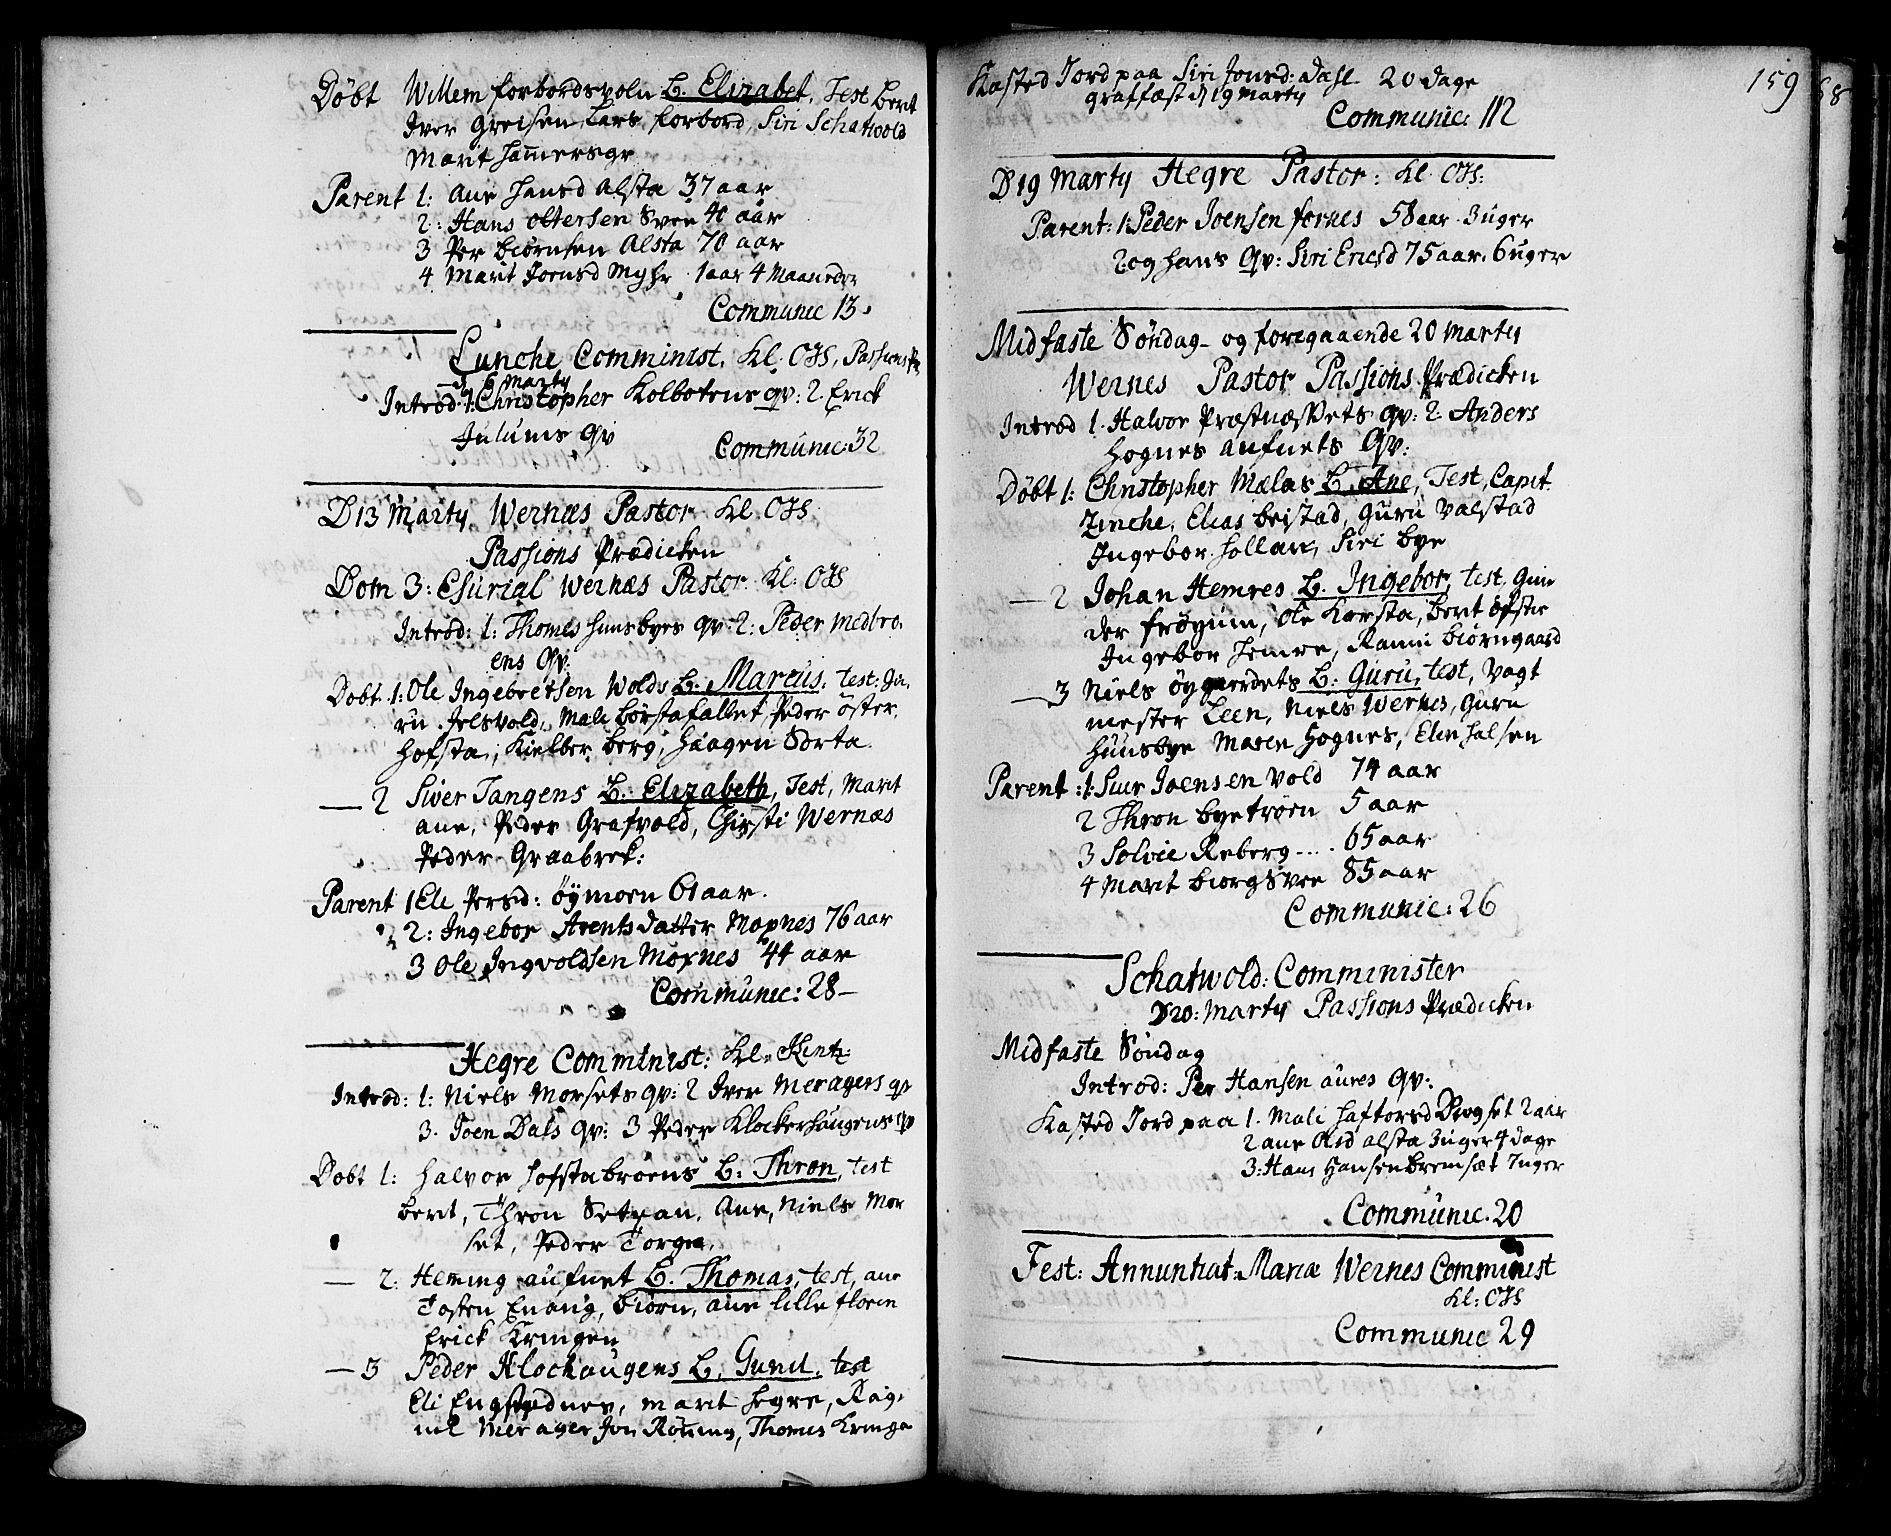 Døbt Willem forbordsvoln B. Elizabet, Test Berit
Iver Greisen, Lars forbord, Siri Schatwold
Marit ham̄ersgr
Parent 1: Ane hansd Alsta 37 aar
2: Hans Ottersen Svee 40 aar
3 Per Biørnsen Alsta 70 aar
4 Marit Joensd Myhr 1 aar 4 Maaneder
Communic 13.
Lunche Comminist. Kl. OJS, Passions Pr
d 6 Marty
Introd: 1: Christopher Kolbotens qv: 2. Erick
Julums qv
Communic: 32
D 13 Marty Wernæs Pastor Kl. OJS
Passions Prædicken
Dom 3: Esurial Wernæs Pastor Kl. OJS
Introd: 1: Thomes hunsbyes qv: 2: Peder medbro,
ens qv:
Døbt 1: Ole Ingebretsen Wolds B. Marcus. test: Gu,
ru Jelsvold, Mali børstafallet, Peder öster,
hofsta, Kielber berg, haagen Sorta
— 2 Siver Tangens B. Elizabeth, Test, Marit
ane, Peder Grafvold, Chirsti Wernæs
Peder Graabrek:
Parent 1 Eli Persd: öymoen 61 aar.
2: Ingebor Arentsdatter Moxnes 76 aar
3 Ole Ingvoldsen Moxnes 44 aar
Communic: 28 —
Hegre Comminist: Kl.
Introd: 1: Niels Morsets qv: 2 Iver Meragers qv
3. Joen Dals qv: 3 Peder Klockerhaugens qv
Døbt 1: halvor hofstabrøens B: Thron, test
berit, Thron Setran, Ane, Niels Mor
set, Peder Torgn.
— 2: Heming aufnet B. Thomas, test, ane
Tosten Enang, biørn, ane lille floren
Erick Kringen
— 3 Peder Klochaugens B. Gunil, test
Eli marit hegre, Rag,
nil Merager Jon Rön̄ing, Thomes Kringe
159
Kasted Jord paa Siri Jonsd: dahl 20 dage
graffæst d 19 Marty
Communic: 112
D 19 Marty Hegre Pastor: Kl OJS:
Parent: 1: Peder Joensen fornes 58 aar 3 uger
2 og hans qv: Siri Ericsd 75 aar. 6 uger
Midfaste Søndag og foregaaende 20 Marty
Wernes Pastor Passions Prædicken
Introd 1. Halvor Præstnæsvets qv: 2: Anders
Hognes aufnets qv:
Døbt 1: Christopher Mælas B. Ane, Test, Capit.
Zinche, Elias beistad, Guru Valstad
Ingebor hollan, Siri bye
— 2 Johan Hemres B. Ingebor, test. Gun
der frøyum, Ole Korsta, berit öfstie
Ingebor hemre, Ranni biørngaard
— 3 Niels öygardets B: Guru, test, Vagt
mester Leen, Niels Wernes, Guru
hunsbye Maren Hognes, Elin halsen
Parent: 1: Siur Joensen vold 74 aar
2 Thron byetrøen 5 aar
3 Solvie Reberg .... 65 aar
4 Marit biorgsvee 85 aar
Communic: 26
Schatwold: Comminister
D 20: Marty Passions Prædicken
Midfaste Søndag
Introd: Per Hansen aunes qv:
Kasted Jord paa 1. Mali haftorsd 2 aar
2 ane Olsd alsta 3 uger 4 dage
3: Hans Hansen bremset 7 uger
Communic. 20
Fest: Annuntiat: Mariæ Wernes Comminist
Kl: OJS
Communic 29